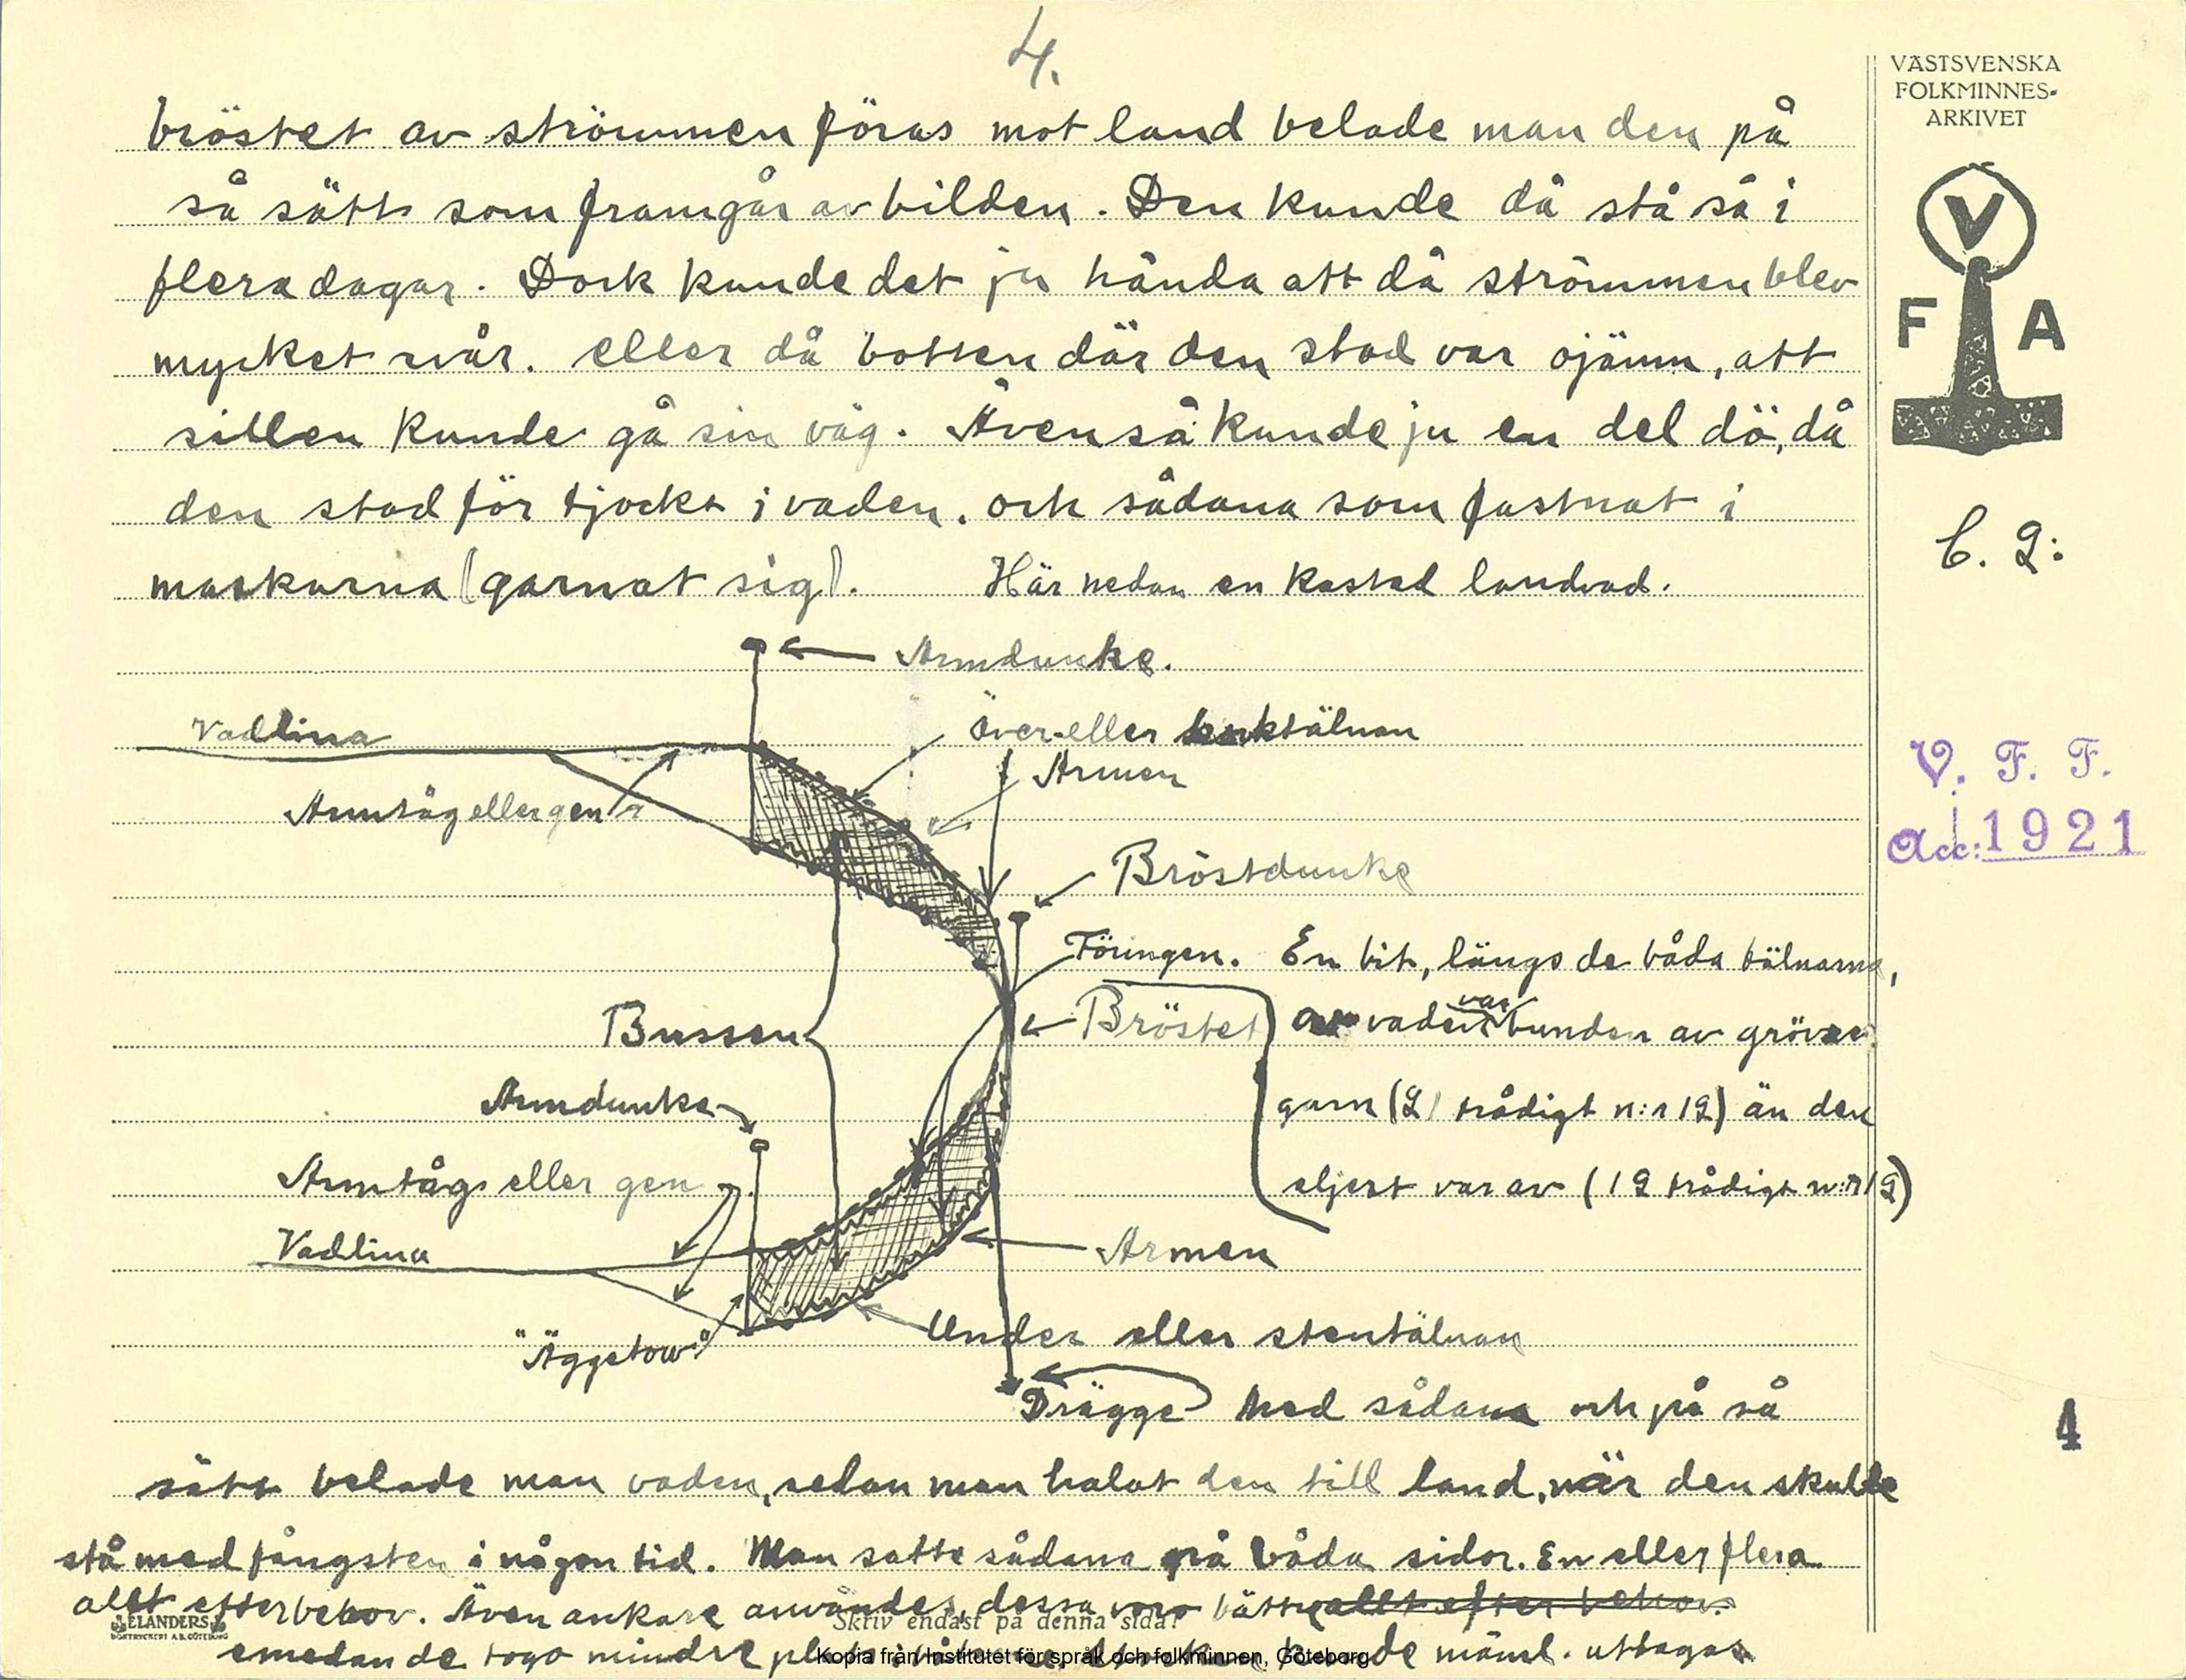 4.
VÄSTSVENSKA
FOLKMINNES-
ARKIVET
V
F A
bröstet av strömmen föras mot land belade man den på
så sätt som framgår av bilden. Den kunde då stå så i
flera dagar. Dock kunde det ju hända att då strömmen blev
mycket svår. eller då botten där den stod var ojämn, att
sillen kunde gå sin väg. Även så kunde ju en del dö, då
den stod för tjockt i vaden. och sådana som fastnat i
C. 2:
maskorna (garnat sig). Här nedan en kastad landvad.
Armdunke.
Vadlina
över-eller korktälnan
Armen
V. F. F.
Acc: 1921
Armtåg eller gen
Bröstdunke
Föringen. En bit, längs de båda tälnarna,
Bussen
Bröstet
av vaden var bunden av grövre
Armdunke
garn (21 trådigt n:r 12) än den
Armtåg eller gen
eljest var av (12 trådigt n:r 12)
Vadlina
Armen
Under eller stentälnan
"Äggetow"
Drägge Med sådana och på så
4
sätt belade man vaden, sedan man halat den till land, när den skulle
stå med fångsten i någon tid. Man satte sådana på båda sidor. En eller flera
allt efter behov. Även ankare användes, dessa voro bättre allt efter behov.
ELANDERS
BOKTRYCKERI A.B. GÖTEBORG
Skriv endast på denna sida!
emedan de togo mindre plats i kunde nämsl. uttagas
Kopia från Institutet för språk och folkminnen, Göteborg